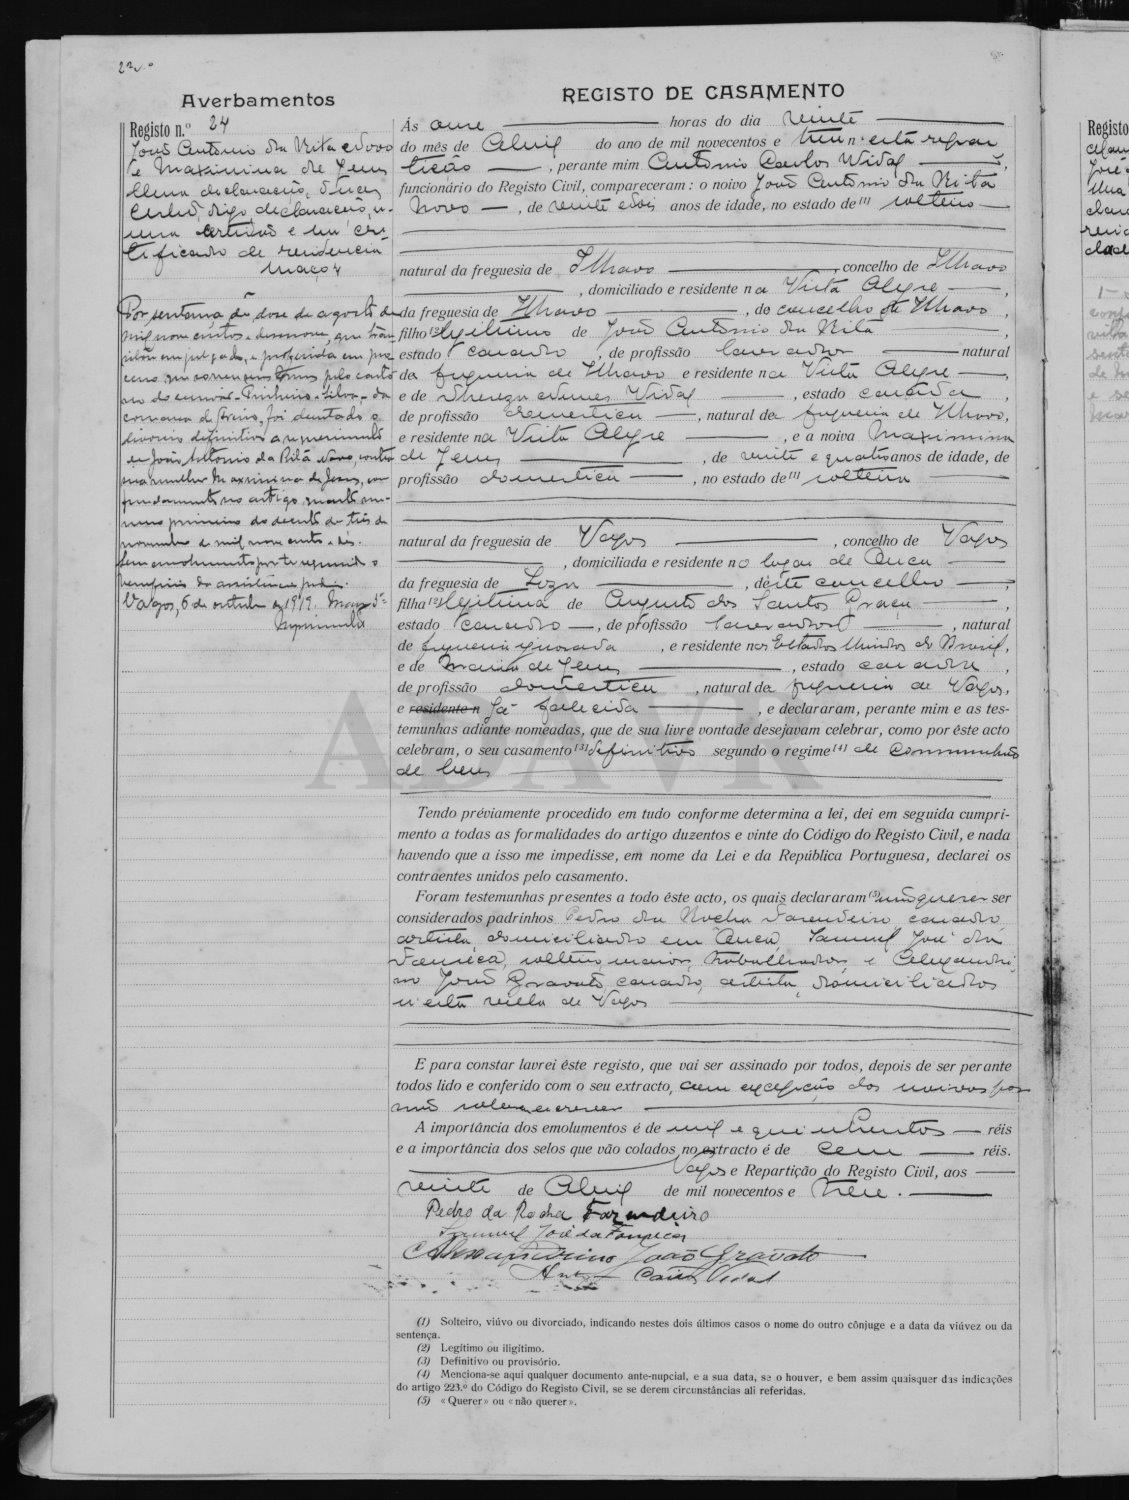 23 v.º
Averbamentos
Registo n.º 24
João António da Rita e Novo
e Maximina de Jesus
uma declaração, duas
certid. digo, declaração, u-
ma certidão e um cer-
tificado de residencia
Maço 4
Por sentença de doze de agosto de
mil novecentos e desenove, que tran-
sitou em julgado, e proferida em pro-
cesso que correu seus termos pelo cartó-
rio do escrivão Pinheiro e Silva, da
comarca de Aveiro, foi decretado o
divorcio definitivo a requerimento
de João António da Rita e Novo, contra
sua mulher Maximina de Jesus, com
fundamento no artigo quarto nu-
mero primeiro do decreto de três de
novembro de mil novecentos e dez.
Sem emolumentos por ter requerido o
beneficio da assistência judici.
Vagos, 6 de outubro de 1919.
REGISTO DE CASAMENTO
Ás onze horas do dia vinte
do mês de Abril do ano de mil novecentos e treze n'esta repar
tição, perante mim António Carlos Vidal,
funcionário do Registo Civil, compareceram: o noivo João António da Rita
Novo, de vinte e dois anos de idade, no estado de (1) solteiro
natural da freguesia de Ilhavo, concelho de Ilhavo
, domiciliado e residente na Vista Alegre,
da freguesia de Ilhavo, do concelho de Ilhavo,
filho (2) legitimo de João António da Rita,
estado casado, de profissão lavrador natural
da freguesia de Ilhavo e residente na Vista Alegre,
e de Thereza Nunes Vidal, estado casada,
de profissão domestica, natural da freguesia de Ilhavo,
e residente na Vista Alegre, e a noiva Maximina
de Jesus, de vinte e quatro anos de idade, de
profissão domestica, no estado de (1) solteira
natural da freguesia de Vagos, concelho de Vagos
, domiciliada e residente no lugar de Ouca
da freguesia de Soza, dêste concelho,
filha (2) legitima de Augusto dos Santos Graça,
estado casado, de profissão lavrador, natural
de freguesia ignorada, e residente nos Estados Unidos do Brasil,
e de Maria de Jesus, estado casada,
de profissão domestica, natural da freguesia de Vagos,
e residente n já falecida, e declararam, perante mim e as tes-
temunhas adiante nomeadas, que de sua livre vontade desejavam celebrar, como por êste acto
celebram, o seu casamento (3) definitivo segundo o regime (4) de communhão
de bens
Tendo préviamente procedido em tudo conforme determina a lei, dei em seguida cumpri-
mento a todas as formalidades do artigo duzentos e vinte do Código do Registo Civil, e nada
havendo que a isso me impedisse, em nome da Lei e da República Portuguesa, declarei os
contraentes unidos pelo casamento.
Foram testemunhas presentes a todo êste acto, os quais declararam (5) não querer ser
considerados padrinhos Pedro da Rocha Farandeiro, casado,
artista, domiciliado em Ouca, Samuel José da
Fonseca, solteiro, maior, trabalhador, e Alexandri-
no João Gravato, casado, artista, domiciliados
n'esta villa de Vagos
E para constar lavrei êste registo, que vai ser assinado por todos, depois de ser perante
todos lido e conferido com o seu extracto, com excepção dos noivos por
não saberem escrever
A importância dos emolumentos é de mil e quinhentos réis
e a importância dos selos que vão colados no extracto é de cem réis.
Vagos e Repartição do Registo Civil, aos
vinte de Abril de mil novecentos e treze.
Pedro da Rocha Farandeiro
Samuel José da Fonseca
Alexandrino João Gravato
Antº Carlos Vidal
(1) Solteiro, viúvo ou divorciado, indicando nestes dois últimos casos o nome do outro cônjuge e a data da viúvez ou da
sentença.
(2) Legítimo ou iligitimo.
(3) Definitivo ou provisório.
(4) Menciona-se aqui qualquer documento ante-nupcial, e a sua data, se o houver, e bem assim quaisquer das indicações
do artigo 223.º do Código do Registo Civil, se se derem circunstâncias ali referidas.
(5) «Querer» ou «não querer».
ADAVR
Registo